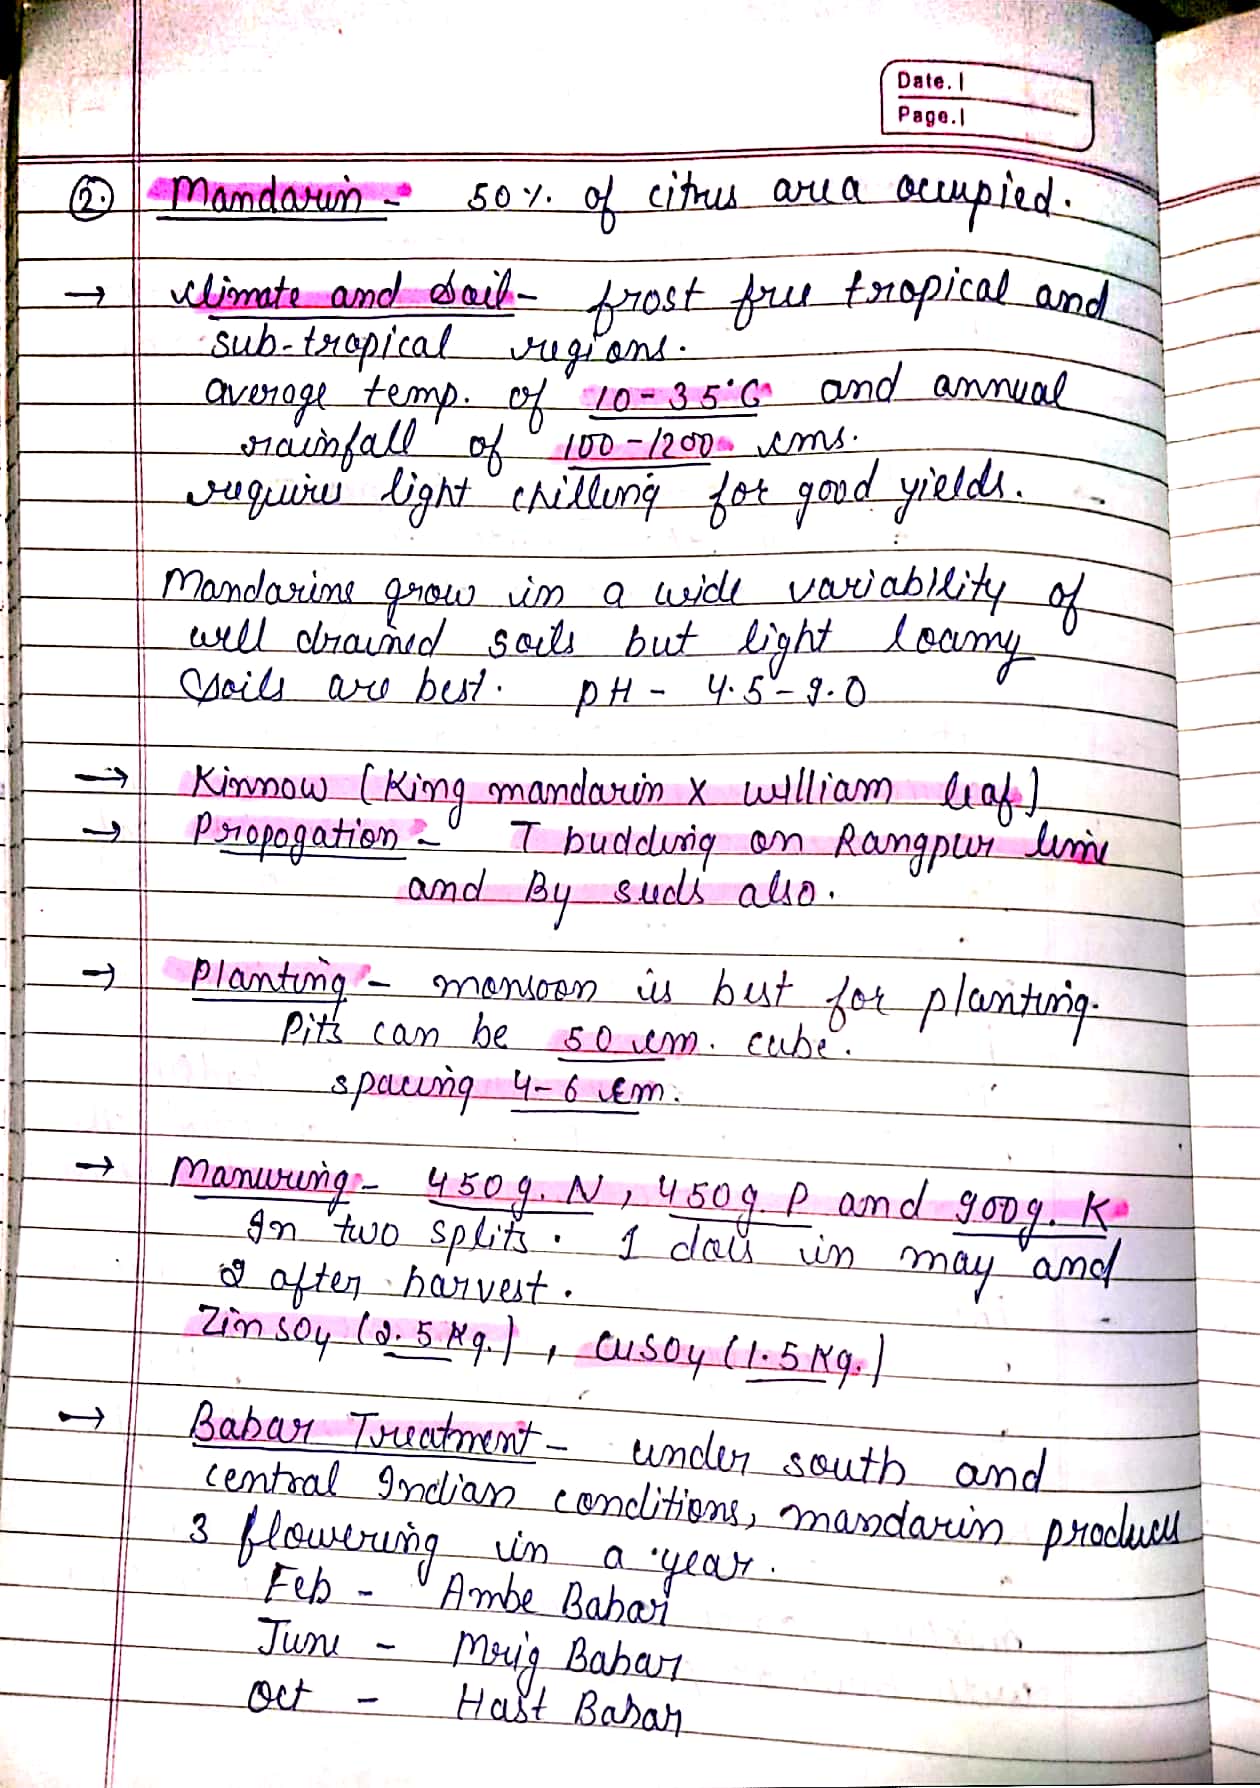 Date.
Page.
2. Mandarin - 50% of citrus area occupied.
→ Climate and Soil - frost free tropical and
sub-tropical regions.
average temp. of 10-35°C and annual
rainfall of 100-1200 cms.
requires light chilling for good yields.
Mandarins grow in a wide variability of
well drained soils but light loamy
soils are best. pH - 4.5-9.0
→ Kinnow (King mandarin x william leaf)
→ Propogation - T budding on Rangpur lime
and By seeds also.
→ Planting - monsoon is best for planting.
Pits can be 50 cm. cube.
spacing 4-6 cm.
→ Manuring - 450g. N, 450g. P and 900g. K
In two splits. 1 dois in may and
2 after harvest.
Zinso4 (2.5 Kg.), Cuso4 (1.5 Kg.)
→ Bahar Treatment - under south and
central Indian conditions, mandarin produces
3 flowering in a year.
Feb - Ambe Bahar
June - Mrig Bahar
Oct - Hast Bahar